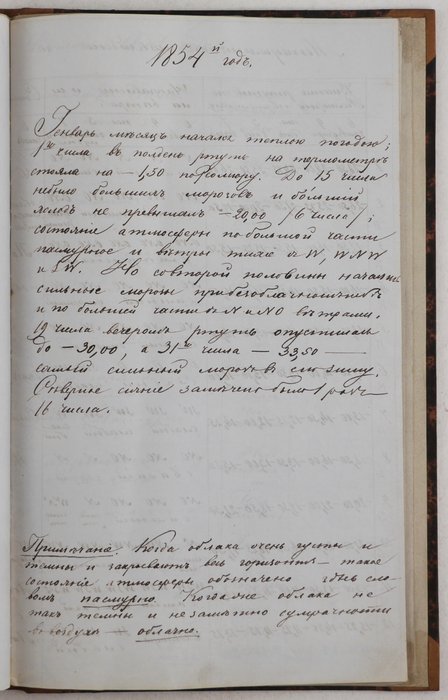 1854й годъ.
Генварь мѣсяцъ начался теплою погодою;
1го числа въ полдень ртуть на термометрѣ
стояла на — 1,50 по Реомюру. До 15 числа
небыло большихъ морозовъ и большій
холодъ не превышалъ — 20,00 (6 числа);
состояніе атмосферы по большой части
пасмурное и вѣтры тихіе съ W, WNW
и SW. Но со второй половины начались
сильные морозы при безоблачномъ небѣ
и по большей части съ N и NO вѣтрами.
19 числа вечеромъ ртуть опустилась
до — 30,00, а 31го числа — 33,50 —
самый сильный морозъ въ сію зиму.
Сѣверное сіяніе замѣчено было 1 разъ —
16 числа.
Примѣчаніе. Когда облака очень густы и
темны и закрываютъ весь горизонтъ — такое
состояніе атмосферы обозначено здѣсь сло-
вомъ пасмурно. Когда же облака не
такъ темны и незамѣтно сумрачности
въ воздухѣ — облачно.